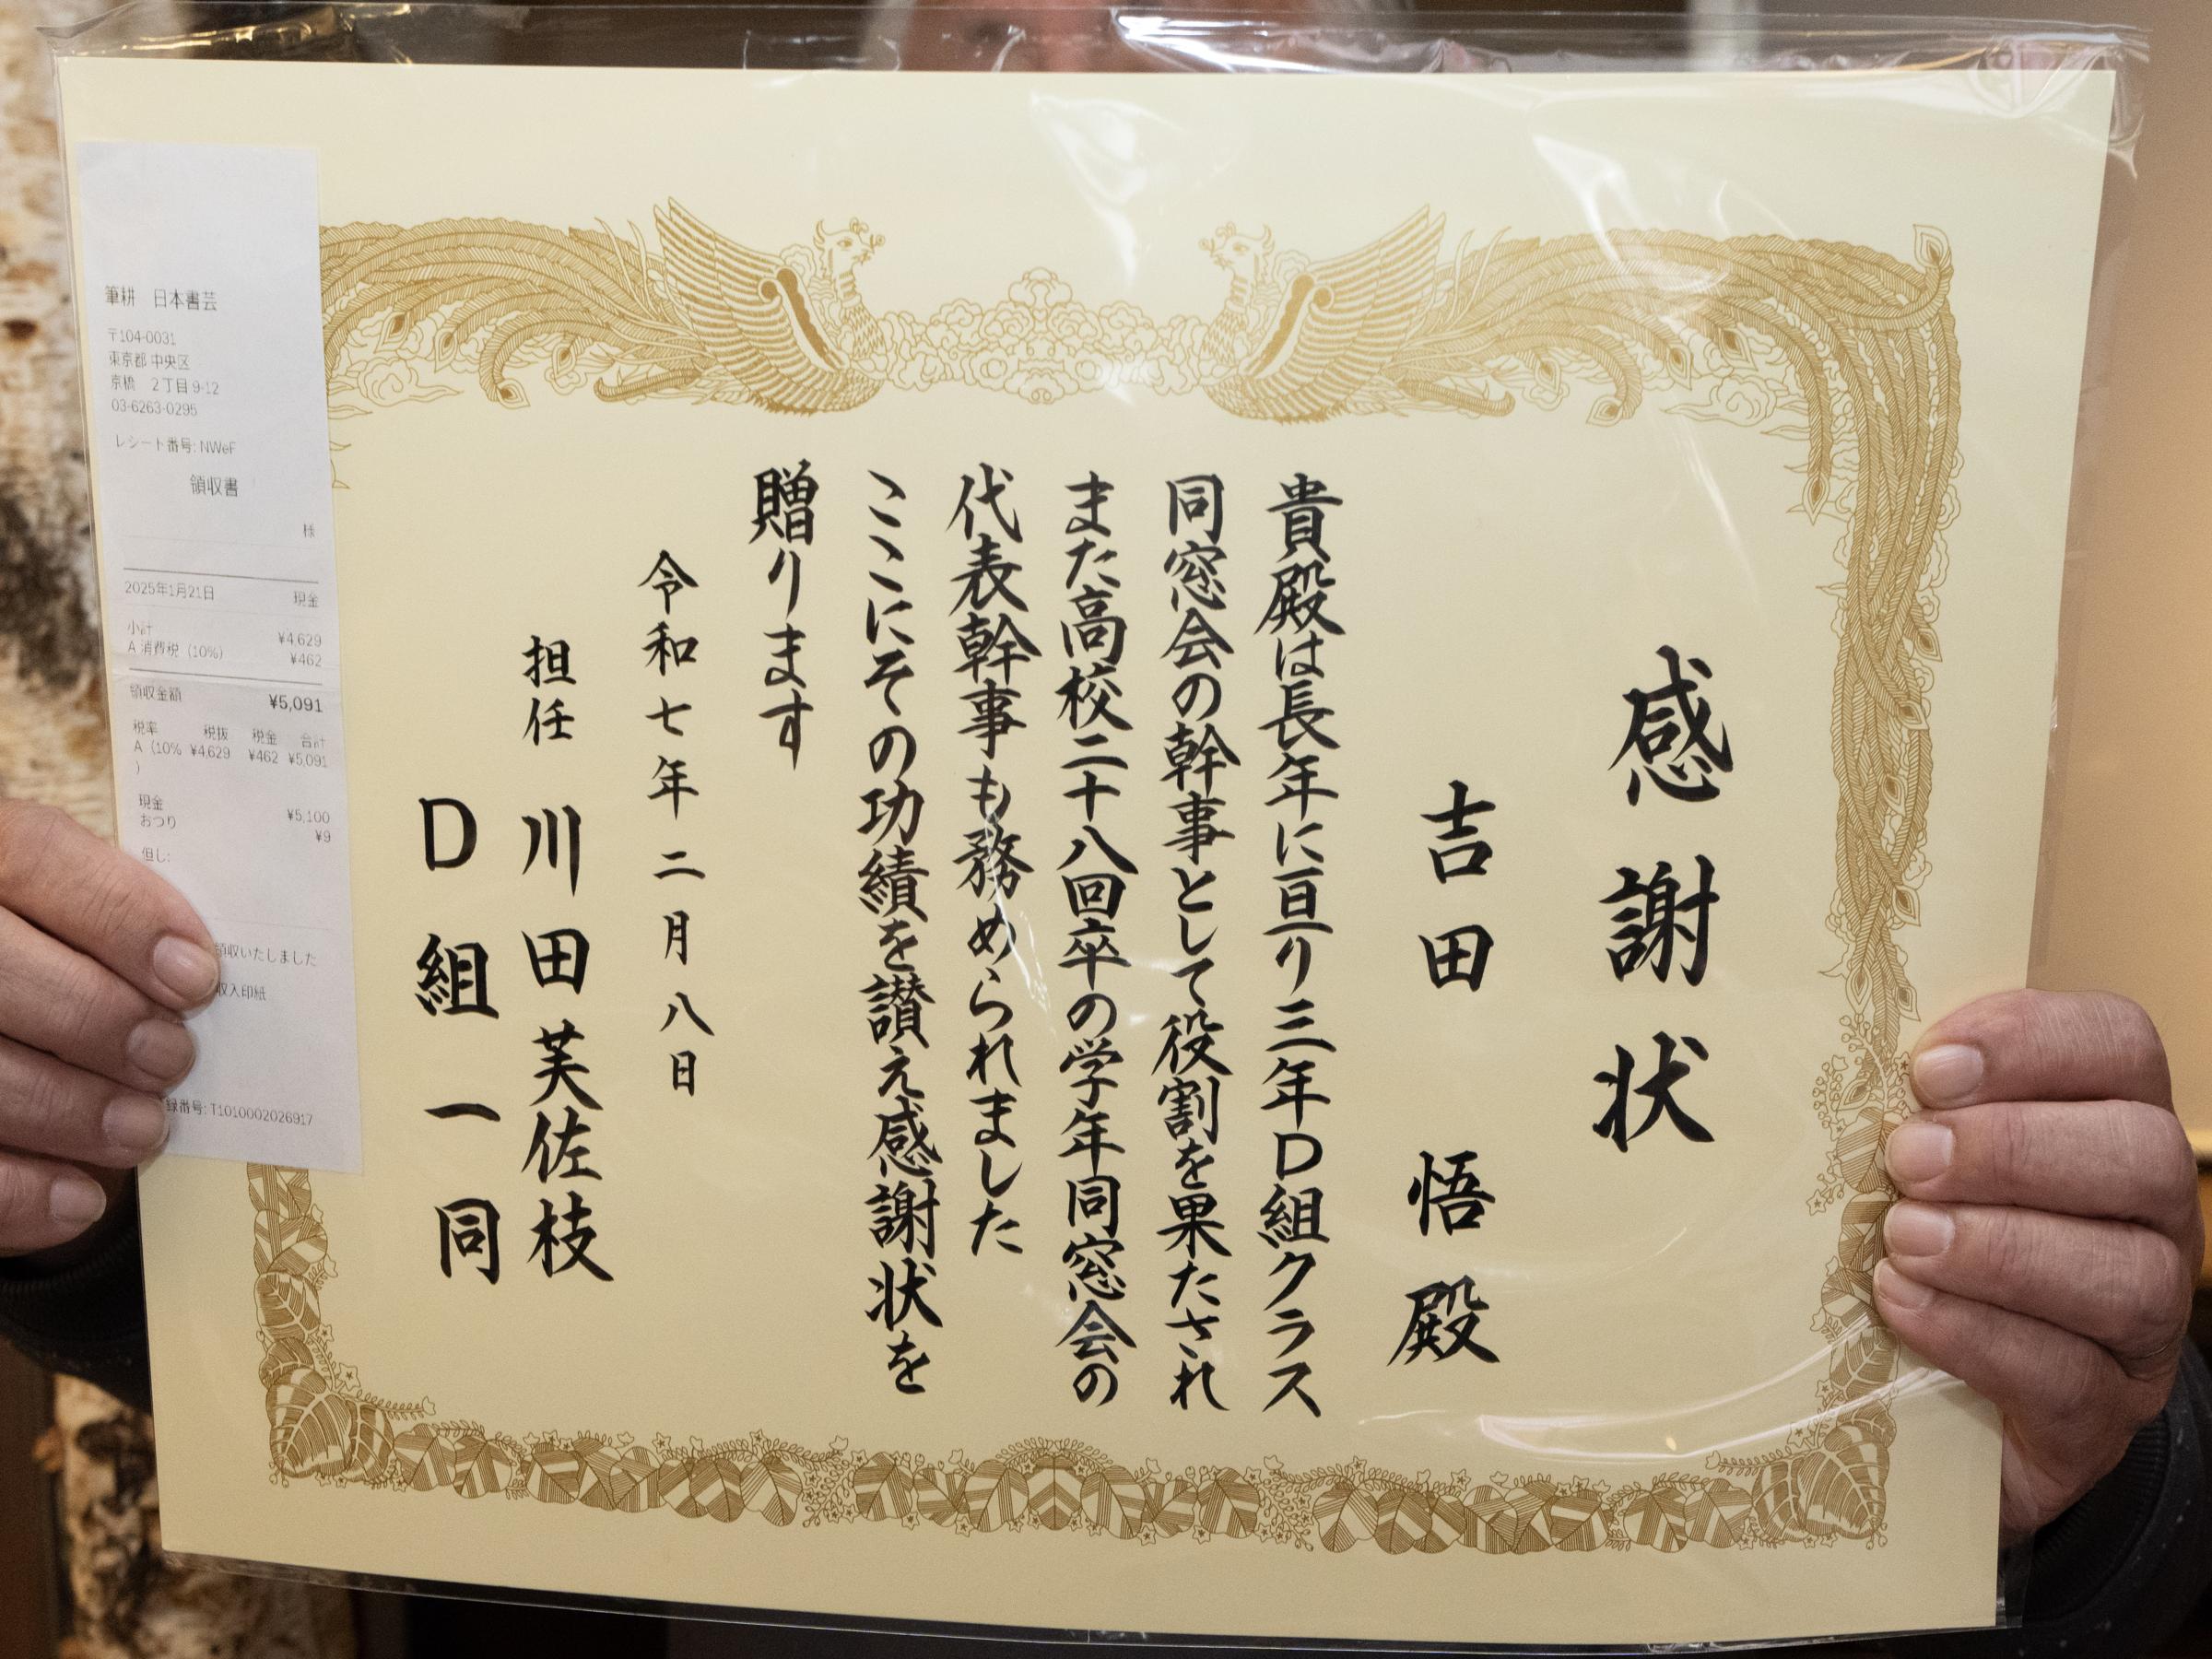 感謝状
吉田 悟 殿
貴殿は長年に亘り三年D組クラス
同窓会の幹事として役割を果たされ
また高校二十八回卒の学年同窓会の
代表幹事も務められました
ここにその功績を讃え感謝状を
贈ります
令和七年二月八日
担任 川田芙佐枝
D組一同
筆耕 日本書芸
〒104-0031
東京都 中央区
京橋 2丁目 9-12
03-6263-0295
レシート番号: NWeF
領収書
様
2025年1月21日 現金
小計 ¥4,629
A 消費税 (10%) ¥462
領収金額 ¥5,091
税率 税抜 税金 合計
A (10% ¥4,629 ¥462 ¥5,091
)
現金 ¥5,100
おつり ¥9
但し:
領収いたしました
収入印紙
録番号: T1010002026917